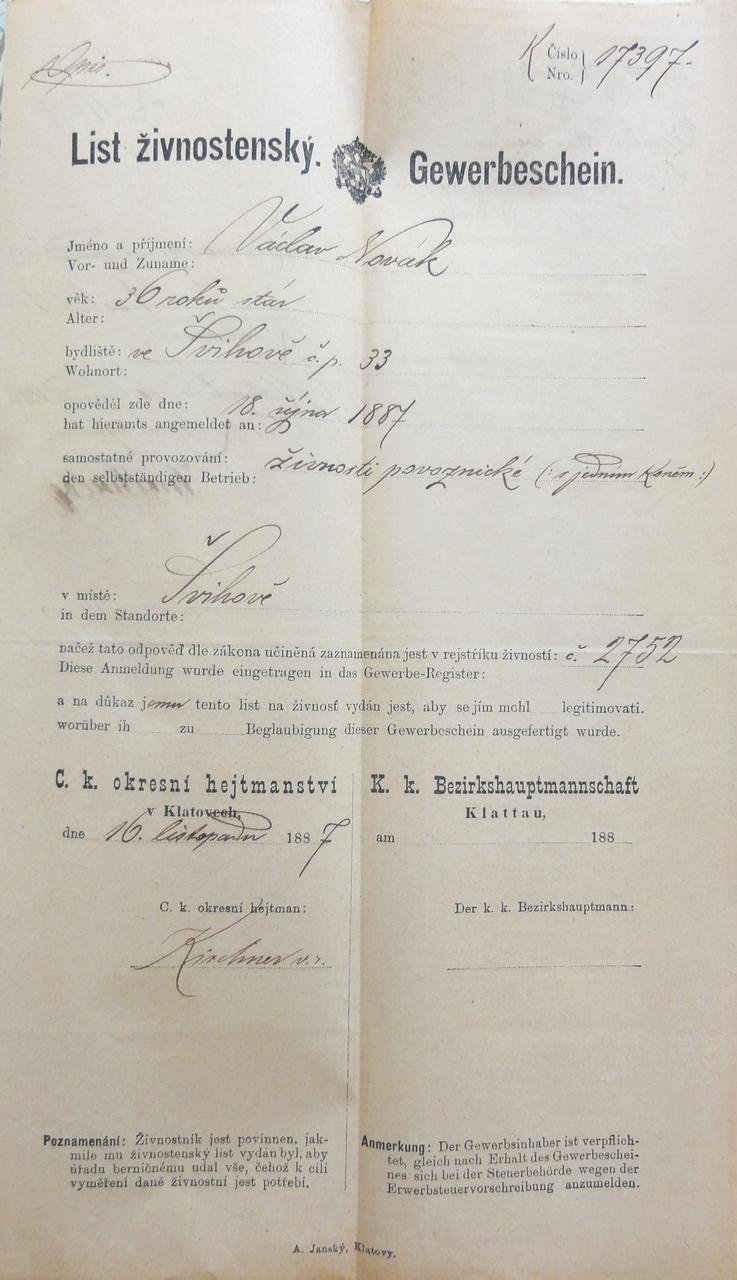 Opis.
K Číslo
Nro. } 17397.
List živnostenský. Gewerbeschein.
Jméno a příjmení: Václav Novák
Vor- und Zuname:
věk: 36 roků stár
Alter:
bydliště: ve Švihově č. p. 33
Wohnort:
opověděl zde dne: 18. října 1887
hat hieramts angemeldet an:
samostatné provozování: živnosti povoznické (: s jedním koněm :)
den selbstständigen Betrieb:
v místě: Švihově
in dem Standorte:
načež tato odpověď dle zákona učiněná zaznamenána jest v rejstříku živností: č. 2752
Diese Anmeldung wurde eingetragen in das Gewerbe-Register:
a na důkaz jemu tento list na živnosť vydán jest, aby se jím mohl legitimovati.
worüber ih zu Beglaubigung dieser Gewerbeschein ausgefertigt wurde.
C. k. okresní hejtmanství
v Klatovech,
dne 16. listopadu 1887
C. k. okresní hejtman:
Kirchner v. r.
K. k. Bezirkshauptmannschaft
Klattau,
am 188
Der k. k. Bezirkshauptmann:
Poznamenání: Živnostník jest povinnen, jak-
mile mu živnostenský list vydán byl, aby
úřadu berničnému udal vše, čehož k cíli
vyměření daně živnostní jest potřebí.
Anmerkung: Der Gewerbsinhaber ist verpflich-
tet, gleich nach Erhalt des Gewerbeschei-
nes sich bei der Steuerbehörde wegen der
Erwerbsteuervorschreibung anzumelden.
A. Janský, Klatovy.